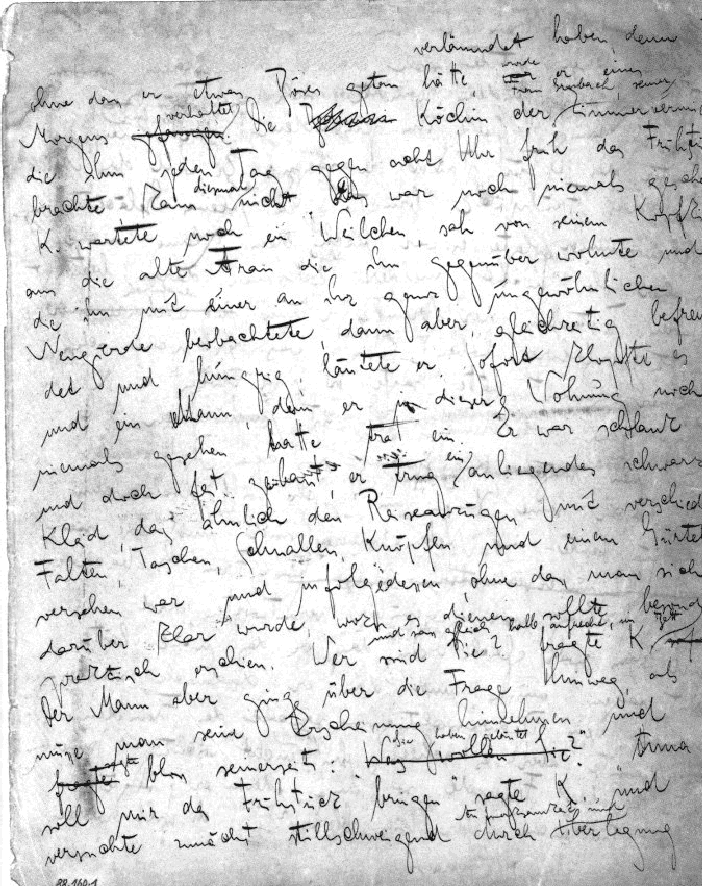 verläumdet haben, denn
ohne dass er etwas Böses getan hätte, wurde er eines
Frau Grubach, seiner
Morgens gefangen verhaftet. Die Köchin der Zimmervermie
die ihm jeden Tag gegen acht Uhr früh das Frühstü
brachte, kam diesmal nicht. Das war noch niemals gesche
K. wartete noch ein Weilchen, sah von seinem Kopfki
aus die alte Frau die ihm gegenüber wohnte und
die ihn mit einer an ihr ganz ungewöhnlichen
Neugierde beobachtete, dann aber, gleichzeitig befrem
det und hungrig, läutete er. Sofort klopfte es
und ein Mann, den er in dieser Wohnung noch
niemals gesehen hatte trat ein. Er war schlank
und doch fest gebaut, er trug ein anliegendes schwarz
Kleid, das ähnlich den Reiseanzügen mit verschied
Falten, Taschen, Schnallen, Knöpfen und einem Gürtel
versehen war und infolgedessen, ohne dass man sich
darüber klar wurde, wozu es dienen sollte, besond
praktisch erschien. Wer sind Sie? fragte K.
und sass gleich halb aufrecht im Bett
Der Mann aber ging über die Frage hinweg, als
müsse man seine Erscheinung hinnehmen und
fragte sagte bloss seinerseits: Was wollen Sie? Sie haben geläutet?" "Anna
soll mir das Frühstück bringen" sagte K. und
versuchte zunächst stillschweigend durch Überlegung
Aufmerksamkeit und
88.160.1